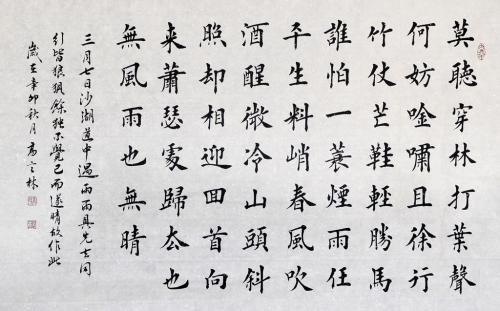 莫聽穿林打葉聲
何妨唫嘯且徐行
竹仗芒鞋輕勝馬
誰怕一蓑煙雨任
平生料峭春風吹
酒醒微冷山頭斜
照却相迎回首向
来蕭瑟處歸厺也
無風雨也無晴
三月七日沙湖道中遇雨雨具先去同
行皆狼狽餘獨不覺已而遂晴故作此
歲在辛卯秋月高立林